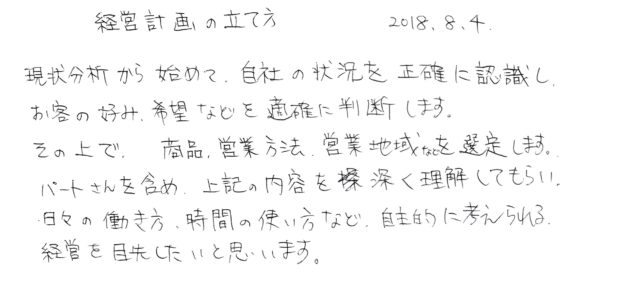 経営計画の立て方 2018.8.4.
現状分析から始めて、自社の状況を正確に認識し、
お客の好み、希望などを適確に判断します。
その上で、商品、営業方法、営業地域などを選定します。
パートさんを含め、上記の内容を深く理解してもらい、
日々の働き方、時間の使い方など、自主的に考えられる、
経営を目先したいと思います。